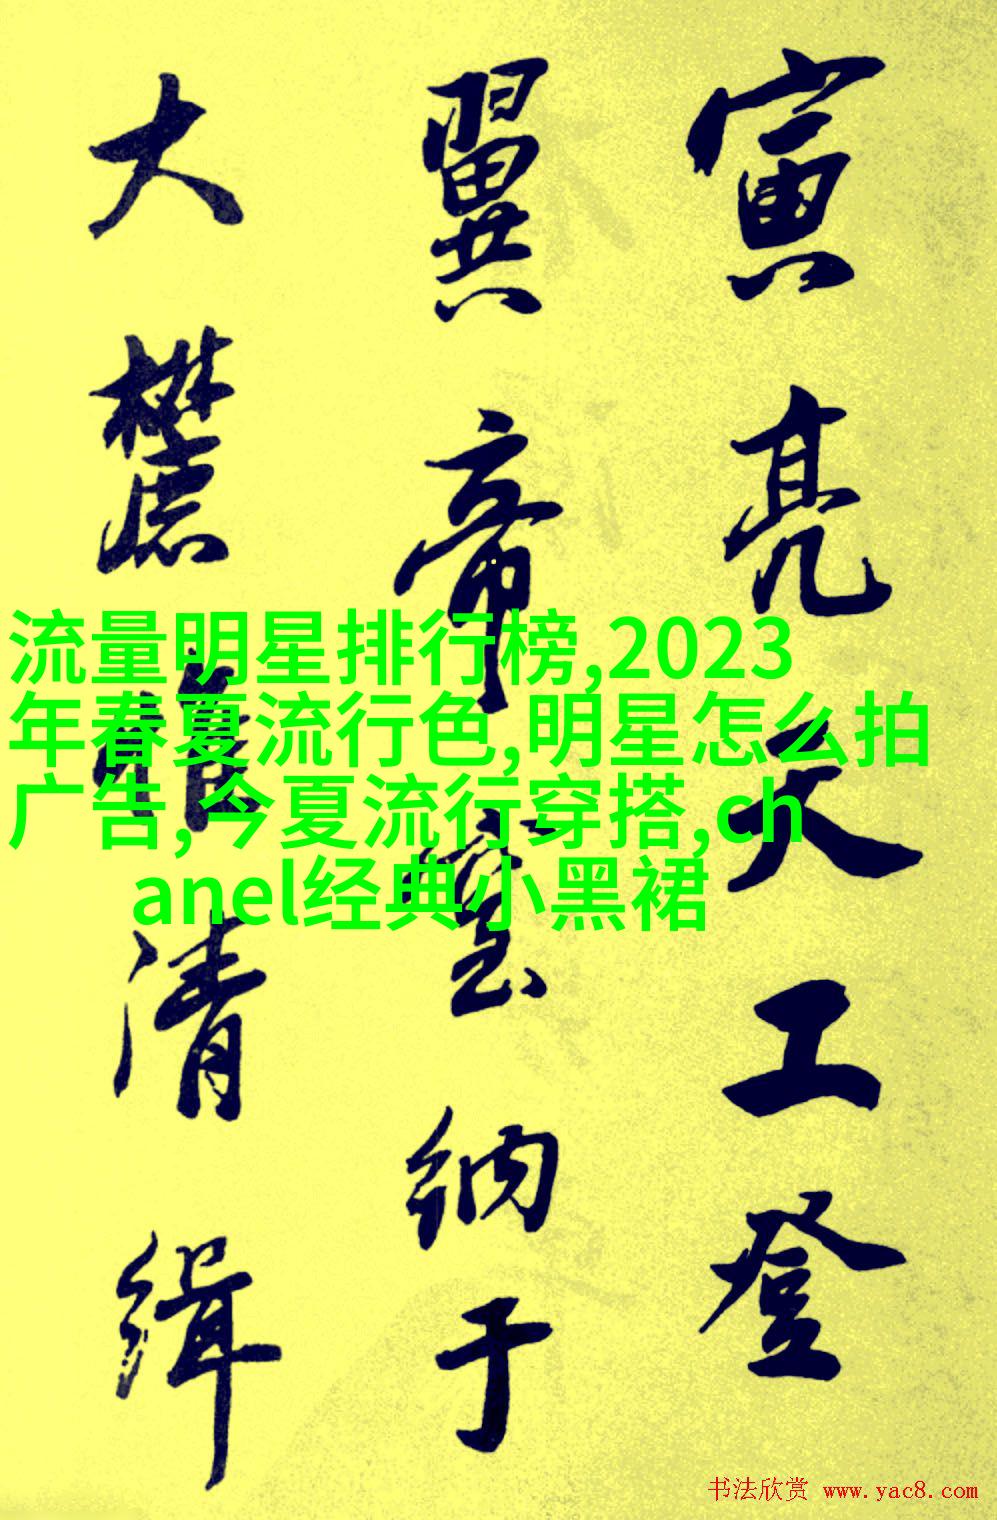 寅亮天工登
翼帝室納于
大麓惟清緝
流量明星排行榜,2023
年春夏流行色,明星怎么拍
广告,今夏流行穿搭,ch
anel经典小黑裙
书法欣赏 www.yac8.com